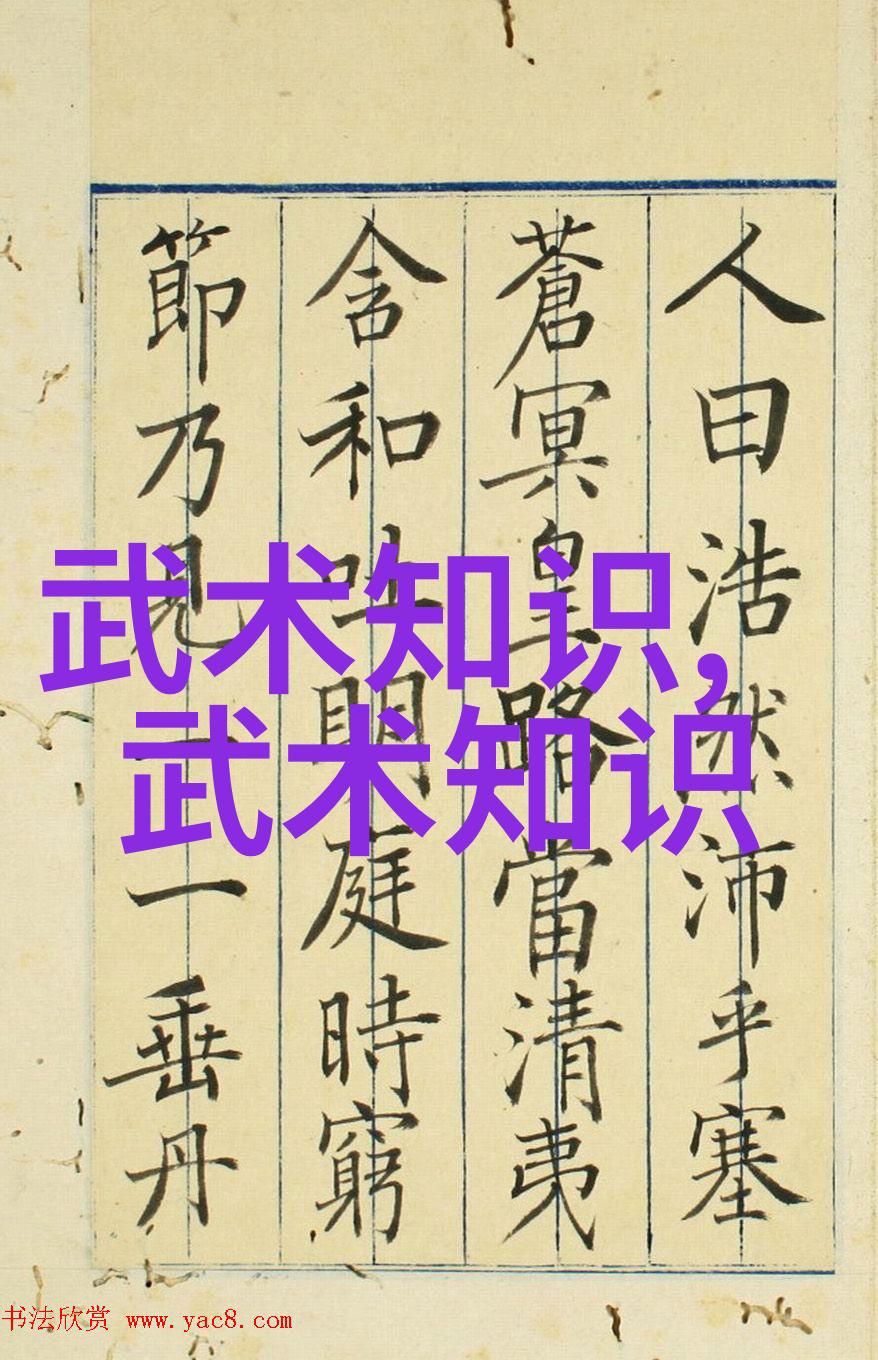 人曰浩然沛乎塞
蒼冥皇路當清夷
含和吐明庭時窮
節乃見一一垂丹
武术知识,
武术知识
书法欣赏 www.yac8.com